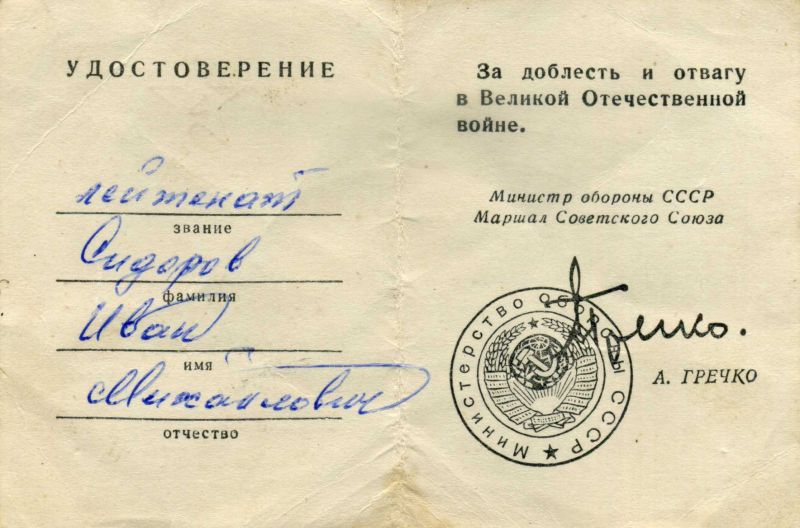 УДОСТОВЕРЕНИЕ
лейтенант
звание
Сидоров
фамилия
Иван
имя
Михайлович
отчество
За доблесть и отвагу
в Великой Отечественной
войне.
Министр обороны СССР
Маршал Советского Союза
Гречко.
А. ГРЕЧКО
Министерство Обороны СССР